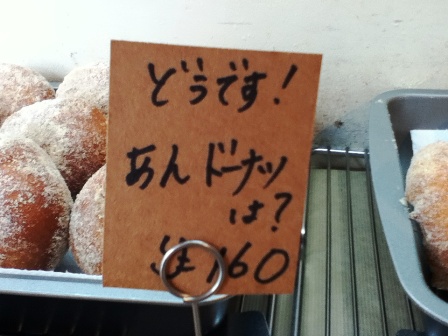 どうです!
あんドーナツ
は?
¥160